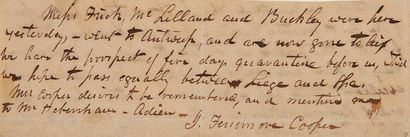 Messrs Fisk, McLelland and Buckley were here
yesterday – went to Antwerp, and are now gone to
We have the prospect of five day quarantine before us, which
we hope to pass equally between Liege and Spa.
Mrs Cooper desires to be remembered, and mention me
to Mr – Adieu –
J. Fenimore Cooper